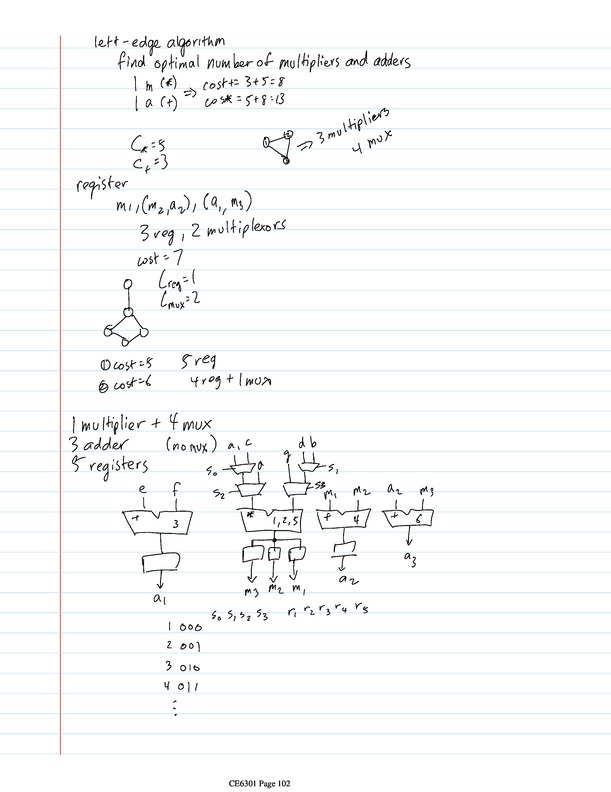 left-edge algorithm
find optimal number of multipliers and adders
1 m (*) ⇒ cost+ = 3+5=8
1 a (+) cost* = 5+8=13
C* = 5
C+ = 3
⇒ 3 multipliers
4 mux
register
m1, (m2, a2), (a1, m3)
3 reg, 2 multiplexors
cost = 7
Creg = 1
Cmux = 2
① cost = 5 5 reg
② cost = 6 4 reg + 1 mux
1 multiplier + 4 mux
3 adder (no mux)
5 registers
a, c d b
s0 a g s1
s2 s3
e f m1 m2 a2 m3
+ 3 * 1,2,5 + 4 + 6
m3 m2 m1 a2 a3
a1
s0 s1 s2 s3 r1 r2 r3 r4 r5
1 000
2 001
3 010
4 011
⋮
CE6301 Page 102